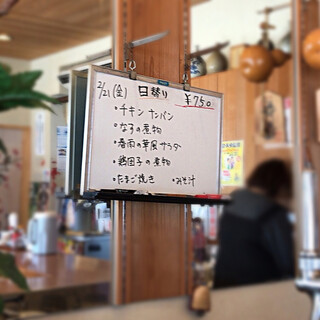 2/21(金) 日替り ¥750
・チキンナンバン
・なすの煮物
・春雨の華風サラダー
・鶏団子の煮物
・たまご焼き ・みそ汁